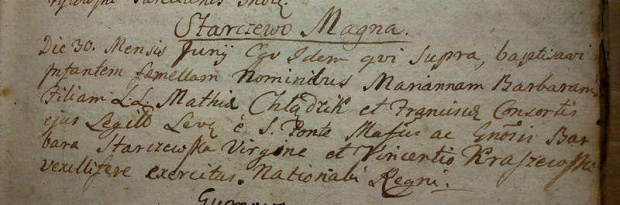 Starczewo Magna.
Die 30. Mensis Junij Ego Idem qui supra, baptisavi
Infantem famellam Nominibus Mariannam Barbaram
Filiam LL Mathia Chłądzik et Francisca Consortis
ejus Legitt Levx è S. Fonte Mafius ac Gnosis Bar
bara Starczewska Virgine et Vincentio Kraszewski
vexillifere exercitus Nationabi Regni.